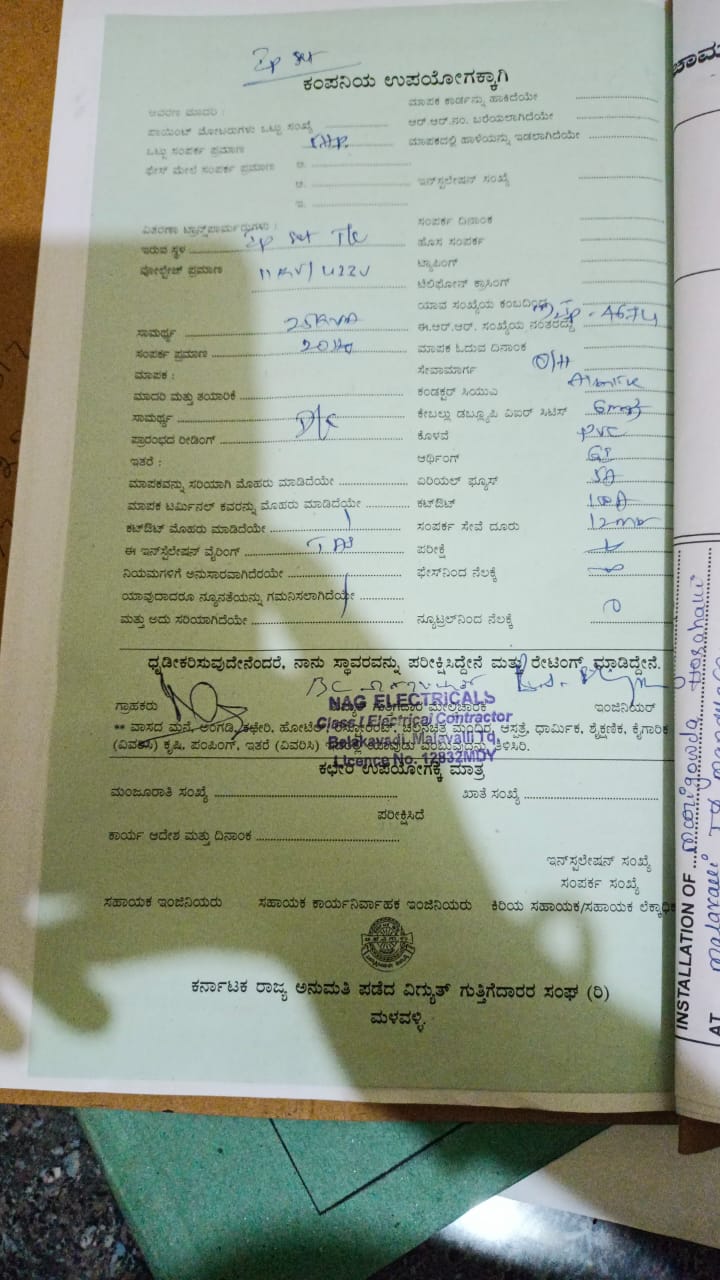 Ip set
ಕಂಪನಿಯ ಉಪಯೋಗಕ್ಕಾಗಿ
ಆವರಣ ಮಾದರಿ :
ಮಾಪಕ ಕಾರ್ಡನ್ನು ಹಾಕಿದೆಯೇ
ಪಾಯಿಂಟ್ ಮೋಟರುಗಳು ಒಟ್ಟು ಸಂಖ್ಯೆ
ಆರ್.ಆರ್.ನಂ. ಬರೆಯಲಾಗಿದೆಯೇ
ಒಟ್ಟು ಸಂಪರ್ಕ ಪ್ರಮಾಣ
ಮಾಪಕದಲ್ಲಿ ಹಾಳೆಯನ್ನು ಇಡಲಾಗಿದೆಯೇ
ಫೇಸ್ ಮೇಲೆ ಸಂಪರ್ಕ ಪ್ರಮಾಣ ಅ.
ಆ.
ಇನ್‌ಸ್ಟಲೇಷನ್ ಸಂಖ್ಯೆ
ಇ.
ವಿತರಣಾ ಟ್ರಾನ್ಸ್‌ಪಾರ್ಮರ್‍ರುಗಳು :
ಸಂಪರ್ಕ ದಿನಾಂಕ
ಇರುವ ಸ್ಥಳ Ip set T/c
ಹೊಸ ಸಂಪರ್ಕ
ವೋಲ್ಟೇಜ್ ಪ್ರಮಾಣ 11KV/422V
ಟ್ಯಾಪಿಂಗ್
ಟೆಲಿಫೋನ್ ಕ್ರಾಸಿಂಗ್
ಯಾವ ಸಂಖ್ಯೆಯ ಕಂಬದಿಂದ
ಸಾಮರ್ಥ್ಯ 25KVA
ಈ.ಆರ್.ಆರ್. ಸಂಖ್ಯೆಯ ನಂತರದ್ದು
ಸಂಪರ್ಕ ಪ್ರಮಾಣ
ಮಾಪಕ ಓದುವ ದಿನಾಂಕ
ಮಾಪಕ :
ಸೇವಾಮಾರ್ಗ O/H
ಮಾದರಿ ಮತ್ತು ತಯಾರಿಕೆ
ಕಂಡಕ್ಟರ್ ಸಿಯುಎ
ಸಾಮರ್ಥ್ಯ D/c
ಕೇಬಲ್ಲು ಡಬ್ಲ್ಯೂಪಿ ಎಐರ್ ಸಿಟಿಸ್
ಪ್ರಾರಂಭದ ರೀಡಿಂಗ್
ಕೊಳವೆ PVC
ಇತರೆ :
ಆರ್ಥಿಂಗ್ GI
ಮಾಪಕವನ್ನು ಸರಿಯಾಗಿ ಮೊಹರು ಮಾಡಿದೆಯೇ
ಏರಿಯಲ್ ಫ್ಯೂಸ್ 5A
ಮಾಪಕ ಟರ್ಮಿನಲ್ ಕವರನ್ನು ಮೊಹರು ಮಾಡಿದೆಯೇ
ಕಟ್‌ಔಟ್ 100A
ಕಟ್‌ಔಟ್ ಮೊಹರು ಮಾಡಿದೆಯೇ
ಸಂಪರ್ಕ ಸೇವೆ ದೂರು
ಈ ಇನ್‌ಸ್ಟಲೇಷನ್ ವೈರಿಂಗ್
ಪರೀಕ್ಷೆ
ನಿಯಮಗಳಿಗೆ ಅನುಸಾರವಾಗಿದೆರಯೇ
ಫೇಸ್‌ನಿಂದ ನೆಲಕ್ಕೆ
ಯಾವುದಾದರೂ ನ್ಯೂನತೆಯನ್ನು ಗಮನಿಸಲಾಗಿದೆಯೇ
ಮತ್ತು ಅದು ಸರಿಯಾಗಿದೆಯೇ
ನ್ಯೂಟ್ರಲ್‌ನಿಂದ ನೆಲಕ್ಕೆ
ಧೃಡೀಕರಿಸುವುದೇನೆಂದರೆ, ನಾನು ಸ್ಥಾವರವನ್ನು ಪರೀಕ್ಷಿಸಿದ್ದೇನೆ ಮತ್ತು ರೇಟಿಂಗ್ ಮಾಡಿದ್ದೇನೆ.
ಗ್ರಾಹಕರು ಮೇಲ್ವಿಚಾರಕ ಇಂಜಿನಿಯರ್
NAG ELECTRICALS
Class I Electrical Contractor
Belakavadi, Malavalli Tq.
Licence No. 12832MDY
** ವಾಸದ ಮನೆ, ಅಂಗಡಿ, ಕಛೇರಿ, ಹೋಟೆಲ್, ರೆಸ್ಟೋರೆಂಟ್, ಚಲನಚಿತ್ರ ಮಂದಿರ, ಆಸ್ಪತ್ರೆ, ಧಾರ್ಮಿಕ, ಶೈಕ್ಷಣಿಕ, ಕೈಗಾರಿಕೆ
(ವಿವರಿಸಿ) ಕೃಷಿ, ಪಂಪಿಂಗ್, ಇತರೆ (ವಿವರಿಸಿ) ತಿಳಿಸಿರಿ.
ಕಛೇರಿ ಉಪಯೋಗಕ್ಕೆ ಮಾತ್ರ
ಮಂಜೂರಾತಿ ಸಂಖ್ಯೆ ಖಾತೆ ಸಂಖ್ಯೆ
ಪರೀಕ್ಷಿಸಿದೆ
ಕಾರ್ಯ ಆದೇಶ ಮತ್ತು ದಿನಾಂಕ
ಇನ್‌ಸ್ಟಲೇಷನ್ ಸಂಖ್ಯೆ
ಸಂಪರ್ಕ ಸಂಖ್ಯೆ
ಸಹಾಯಕ ಇಂಜಿನಿಯರು ಸಹಾಯಕ ಕಾರ್ಯನಿರ್ವಾಹಕ ಇಂಜಿನಿಯರು ಕಿರಿಯ ಸಹಾಯಕ/ಸಹಾಯಕ
ಕರ್ನಾಟಕ ರಾಜ್ಯ ಅನುಮತಿ ಪಡೆದ ವಿದ್ಯುತ್ ಗುತ್ತಿಗೆದಾರರ ಸಂಘ (ರಿ)
ಮಳವಳ್ಳಿ.
INSTALLATION OF
AT